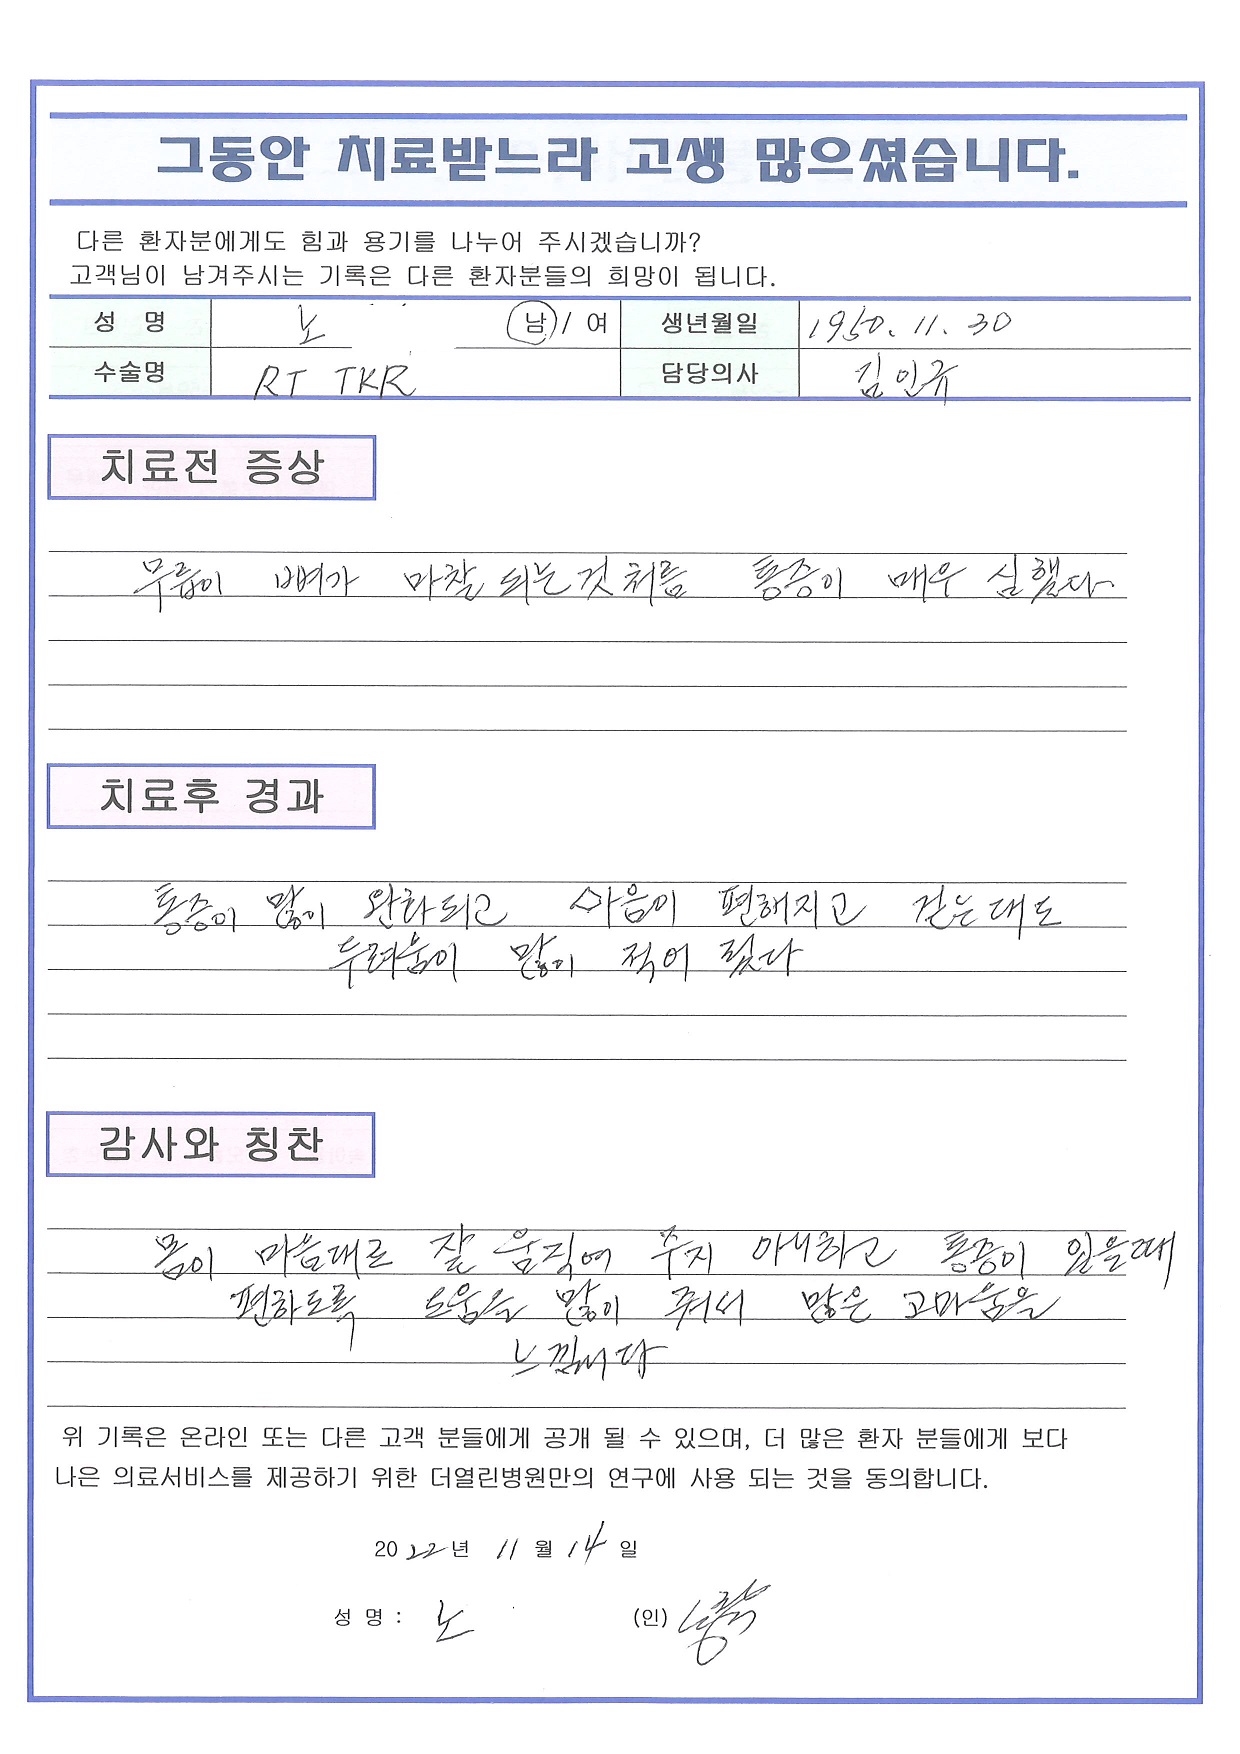 그동안 치료받느라 고생 많으셨습니다.
다른 환자분에게도 힘과 용기를 나누어 주시겠습니까?
고객님이 남겨주시는 기록은 다른 환자분들의 희망이 됩니다.
성 명 노 남 / 여 생년월일 1950. 11. 30
수술명 RT TKR 담당의사 김인규
치료전 증상
무릎이 뼈가 마찰 되는것 처름 통증이 매우 심했다
치료후 경과
통증이 많이 완화되고 마음이 편해지고 걷는대도
두려움이 많이 적어 젔다
감사와 칭찬
몸이 마음대로 잘 움직여 주지 아니하고 통증이 있을때
편하도록 도움을 많이 줘서 많은 고마움을
느낌니다
위 기록은 온라인 또는 다른 고객 분들에게 공개 될 수 있으며, 더 많은 환자 분들에게 보다
나은 의료서비스를 제공하기 위한 더열린병원만의 연구에 사용 되는 것을 동의합니다.
2022년 11 월 14 일
성 명 : 노 (인)